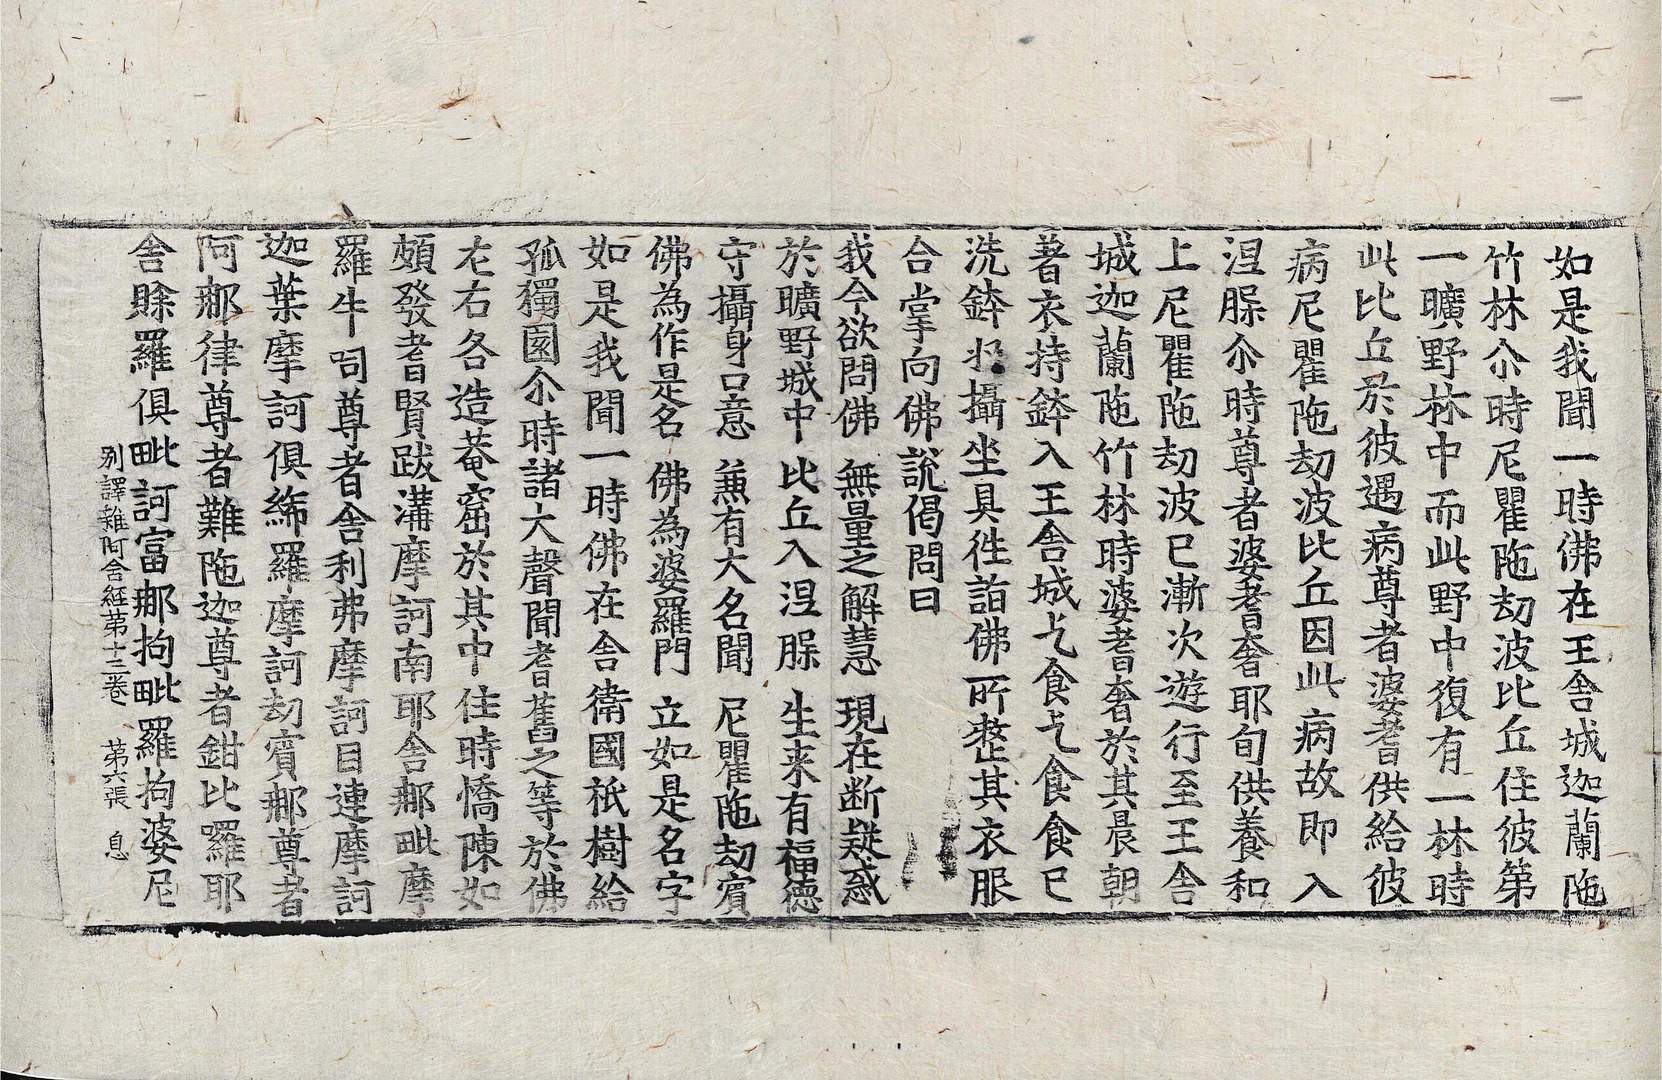 如是我聞一時佛在王舍城迦蘭陁
竹林尒時尼瞿陁劫波比丘住彼第
一曠野林中而此野中復有一林時
此比丘於彼遇病尊者婆耆供給彼
病尼瞿陁劫波比丘因此病故即入
涅䐉尒時尊者婆耆奢耶旬供養和
上尼瞿陁劫波已漸次遊行至王舍
城迦蘭陁竹林時婆耆奢於其晨朝
著衣持鉢入王舍城乞食乞食食已
洗鉢收攝坐具徃詣佛所整其衣服
合掌向佛說偈問曰
我今欲問佛 無量之解慧 現在断疑惑
於曠野城中 比丘入涅䐉 生来有福德
守攝身口意 兼有大名聞 尼瞿陁劫賓
佛為作是名 佛為婆羅門 立如是名字
如是我聞一時佛在舍衛國祇樹給
孤獨園尒時諸大聲聞耆舊之等於佛
左右各造菴窟於其中住時憍陳如
頗發耆賢跋溝摩訶南耶舍那毗摩
羅牛呞尊者舍利弗摩訶目連摩訶
迦葉摩訶俱絺羅摩訶劫賓那尊者
阿那律尊者難陁迦尊者鉗比羅耶
舍賒羅俱毗訶富那拘毗羅拘婆尼
別譯雜阿含經第十三卷 第六張 息